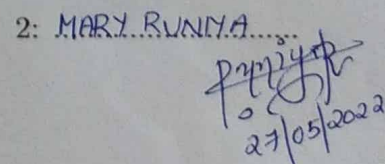 2: MARY RUNIYA......
27/05/2022